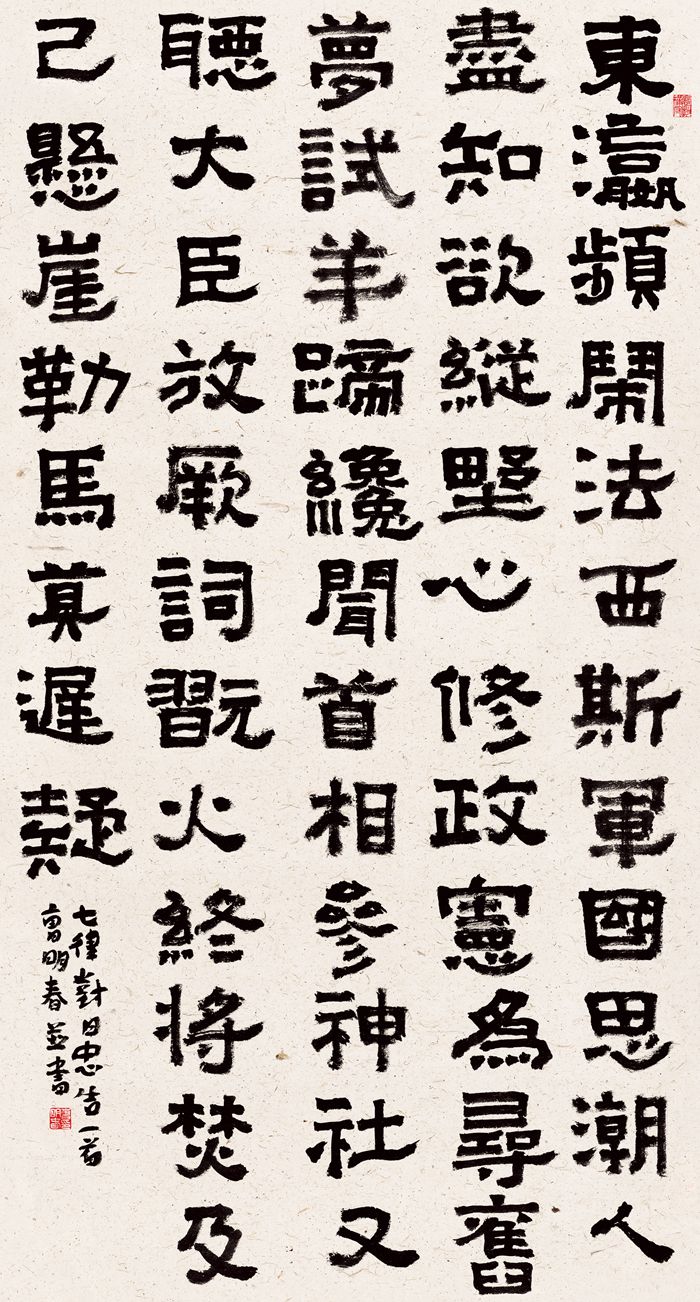 東瀛頻鬧法西斯軍國思潮人
盡知欲縱野心修政憲為尋舊
夢試羊蹄纔聞首相參神社又
聽大臣放厥詞翫火終將焚及
己懸崖勒馬莫遲疑
七律對日忠告一首
曹明春並書